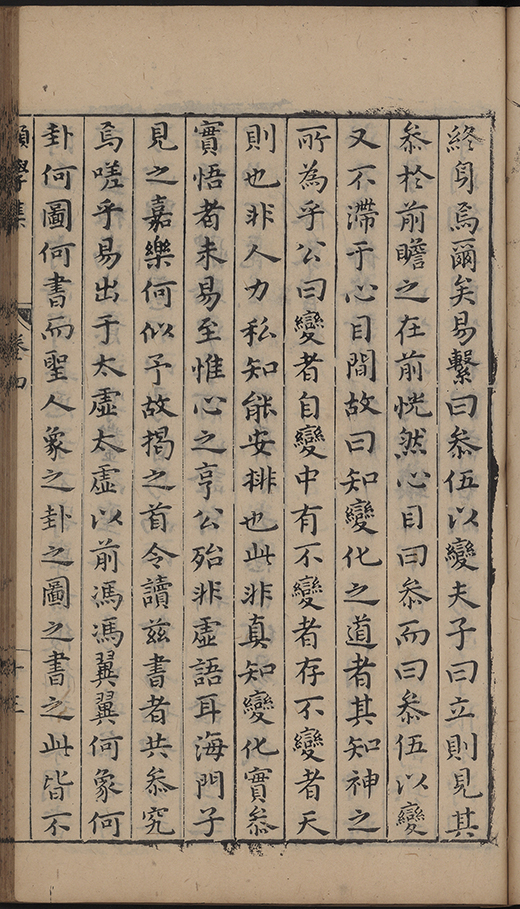 終身焉爾矣易繫曰叅伍以變夫子曰立則見其
叅於前瞻之在前恍然心目曰叅而曰叅伍以變
又不滯于心目間故曰知變化之道者其知神之
所為乎公曰變者自變中有不變者存不變者天
則也非人力私知能安排也此非真知變化實叅
實悟者未易至惟心之亨公殆非虛語耳海門子
見之嘉樂何似予故揭之首令讀茲書者共叅究
焉嗟乎易出于太虛太虛以前馮馮翼翼何象何
卦何圖何書而聖人象之卦之圖之書之此皆不
學集
卷四